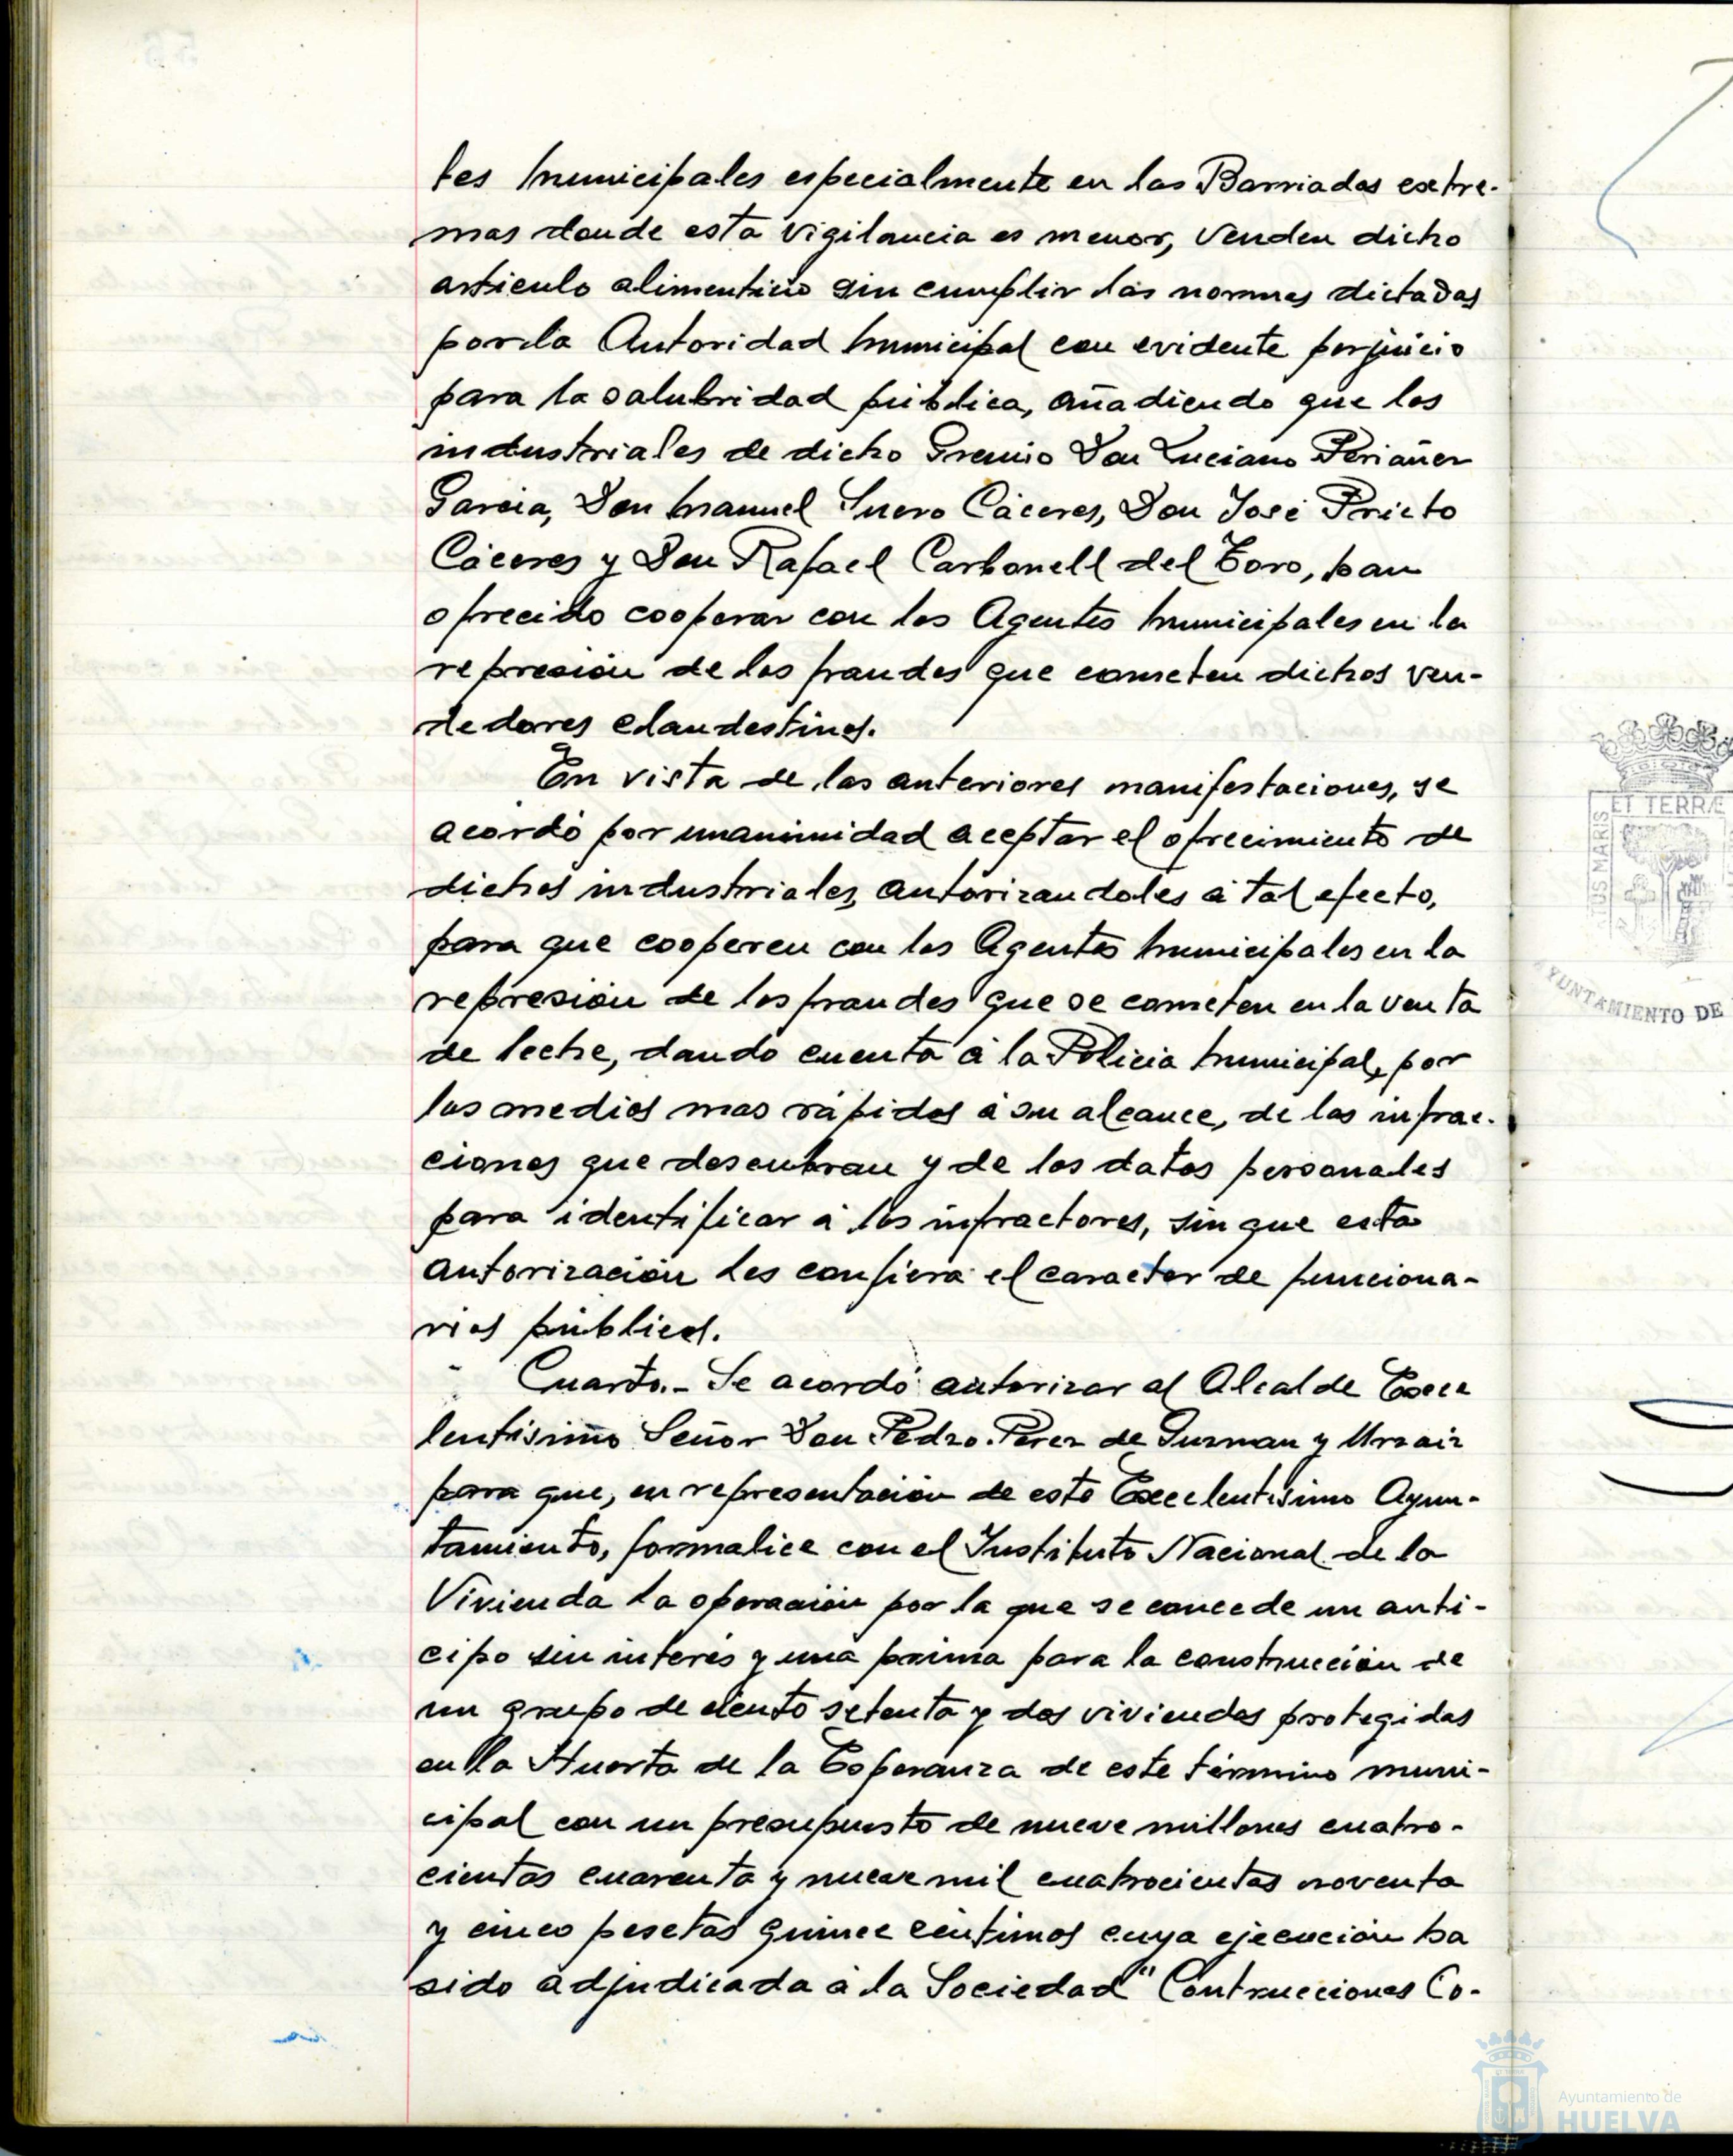 tes municipales especialmente en las Barriadas extre-
mas donde esta vigilancia es menor, venden dicho
artículo alimenticio sin cumplir las normas dictadas
por la Autoridad municipal con evidente perjuicio
para la salubridad pública, añadiendo que los
industriales de dicho Gremio Don Luciano Periañez
Garcia, Don Manuel Suero Cáceres, Don José Prieto
Cáceres y Don Rafael Carbonell del Toro, han
ofrecido cooperar con los Agentes municipales en la
represión de los fraudes que cometen dichos ven-
dedores clandestinos.
En vista de las anteriores manifestaciones, se
acordó por unanimidad aceptar el ofrecimiento de
dichos industriales, autorizandoles á tal efecto,
para que cooperen con los Agentes municipales en la
represión de los fraudes que se cometen en la venta
de leche, dando cuenta á la Policia municipal, por
los medios mas rápidos á su alcance, de las infrac-
ciones que descubran y de los datos personales
para identificar á los infractores, sin que esta
autorización les confiera el caracter de funciona-
rios públicos.
Cuarto.- Se acordó autorizar al Alcalde Exce
lentísimo Señor Don Pedro Perez de Guzman y Urzaiz
para que, en representación de este Excelentísimo Ayun-
tamiento, formalice con el Instituto Nacional de la
Vivienda la operación por la que se concede un anti-
cipo sin interés y una prima para la construcción de
un grupo de ciento setenta y dos viviendas protegidas
en la Huerta de la Esperanza de este término muni-
cipal con un presupuesto de nueve millones cuatro-
cientas cuarenta y nueve mil cuatrocientas noventa
y cinco pesetas quince céntimos cuya ejecución ha
sido adjudicada á la Sociedad "Contrucciones Co-
ET TERRÆ
US MARIS
YUNTAMIENTO DE
Ayuntamiento de
HUELVA